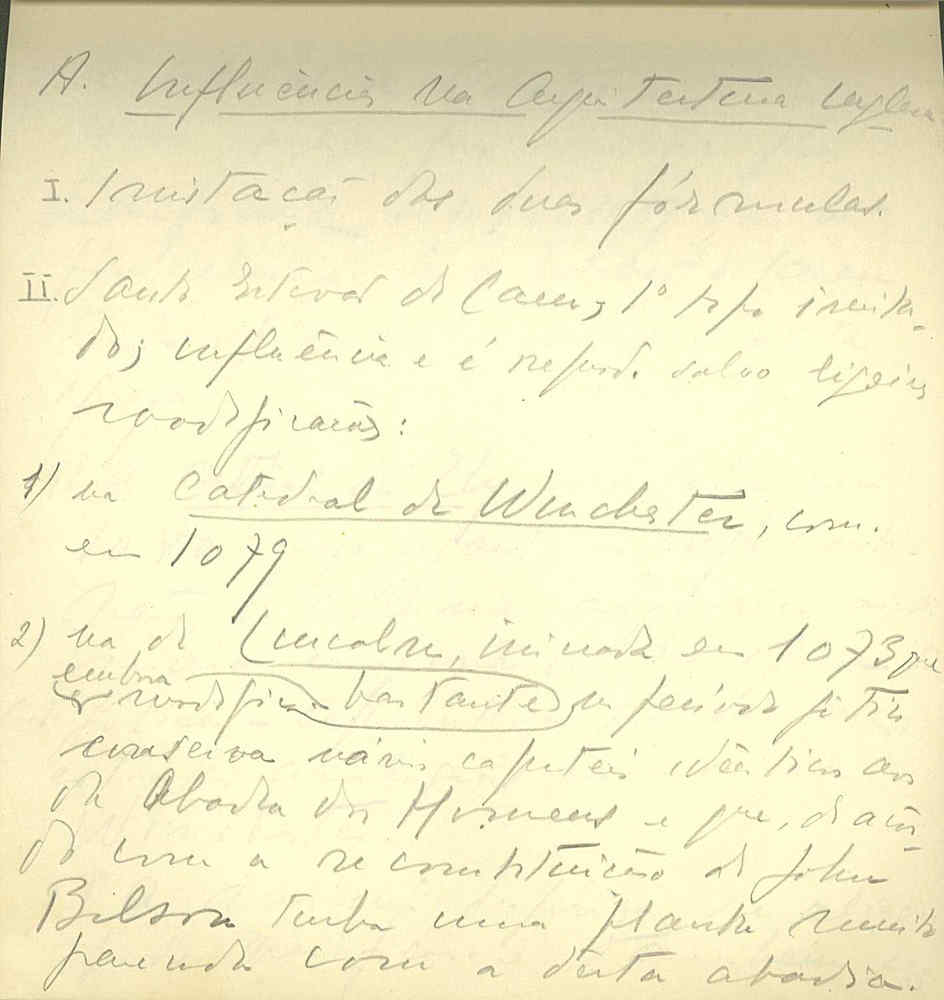 A. Influência na Arquitectura Inglesa
I. Imitação das duas fórmulas.
II. Santo Estevão de Caen, 1º tipo imita-
do; influência e é repetido salvo ligeiras
modificações:
1) na Catedral de Winchester, com.
em 1079
2) na de Lincoln, iniciada em 1073 que
embora
modificada bastante no período gótico
conserva vários capiteis idênticos aos
da Abadia dos Homens e que, de acôr-
do com a reconstituição de John
Bilson tinha uma planta muito
parecida com a desta abadia.